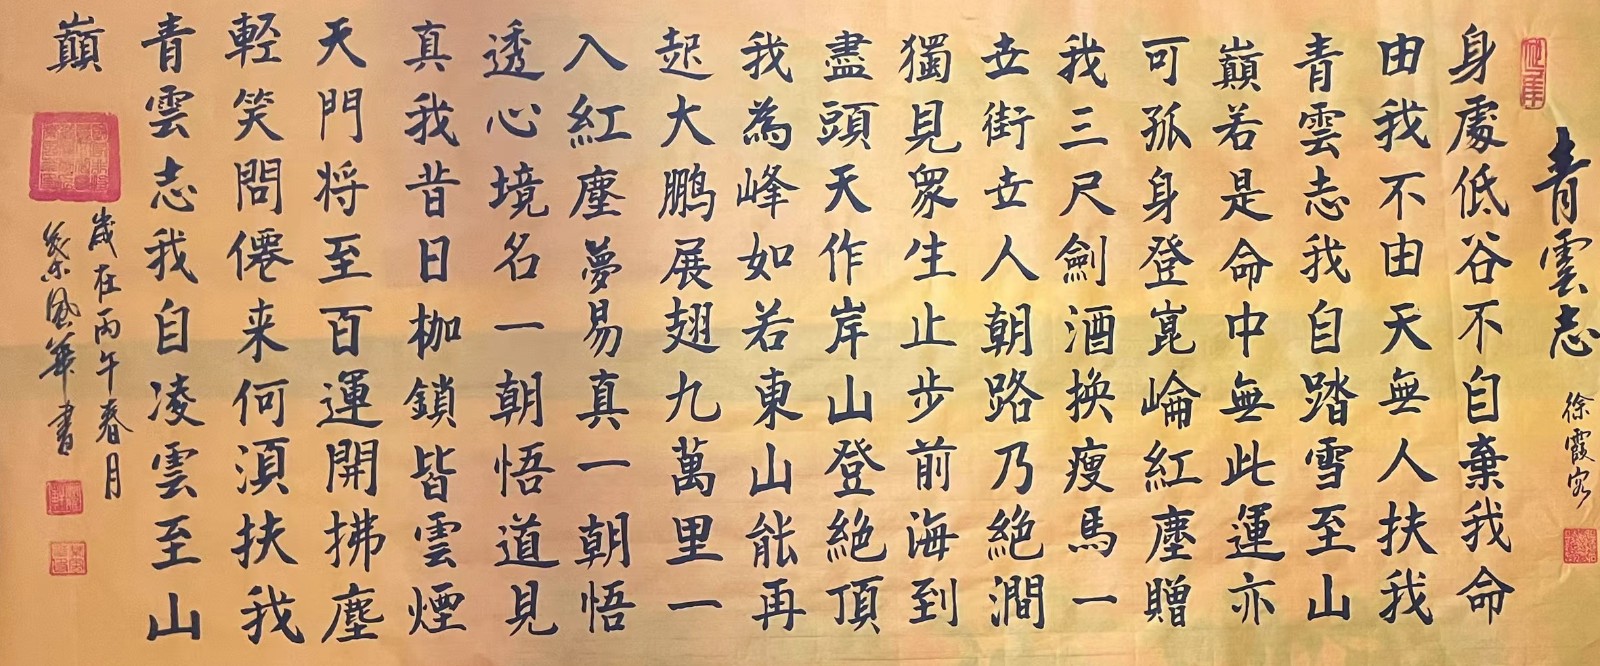 青雲志
徐霞客
身處低谷不自棄我命
由我不由天無人扶我
青雲志我自踏雪至山
巔若是命中無此運亦
可孤身登崑崙紅塵贈
我三尺劍酒換瘦馬一
世街世人朝路乃絕澗
獨見眾生止步前海到
盡頭天作岸山登絕頂
我為峰如若東山能再
起大鵬展翅九萬里一
入紅塵夢易真一朝悟
透心境名一朝悟道見
真我昔日枷鎖皆雲煙
天門将至百運開拂塵
輕笑問僊来何須扶我
青雲志我自凌雲至山
巔
歲在丙午春月
風華書